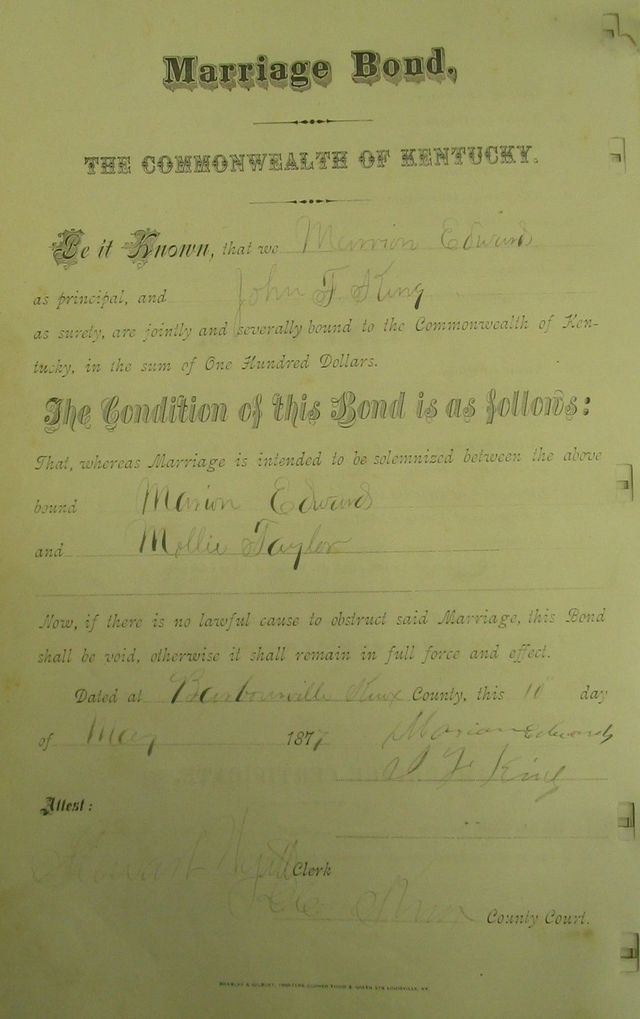 Marriage Bond,
THE COMMONWEALTH OF KENTUCKY.
Be it Known, that we Marrion Edwards
as principal, and John F. King
as surety, are jointly and severally bound to the Commonwealth of Ken-
tucky, in the sum of One Hundred Dollars.
The Condition of this Bond is as follows:
That, whereas Marriage is intended to be solemnized between the above
bound Marion Edwards
and Mollie Taylor
Now, if there is no lawful cause to obstruct said Marriage, this Bond
shall be void, otherwise it shall remain in full force and effect.
Dated at Barbourville Knox County, this 10" day
of May 1877 Marion Edwards
J F King
Attest:
Clerk
Knox County Court.